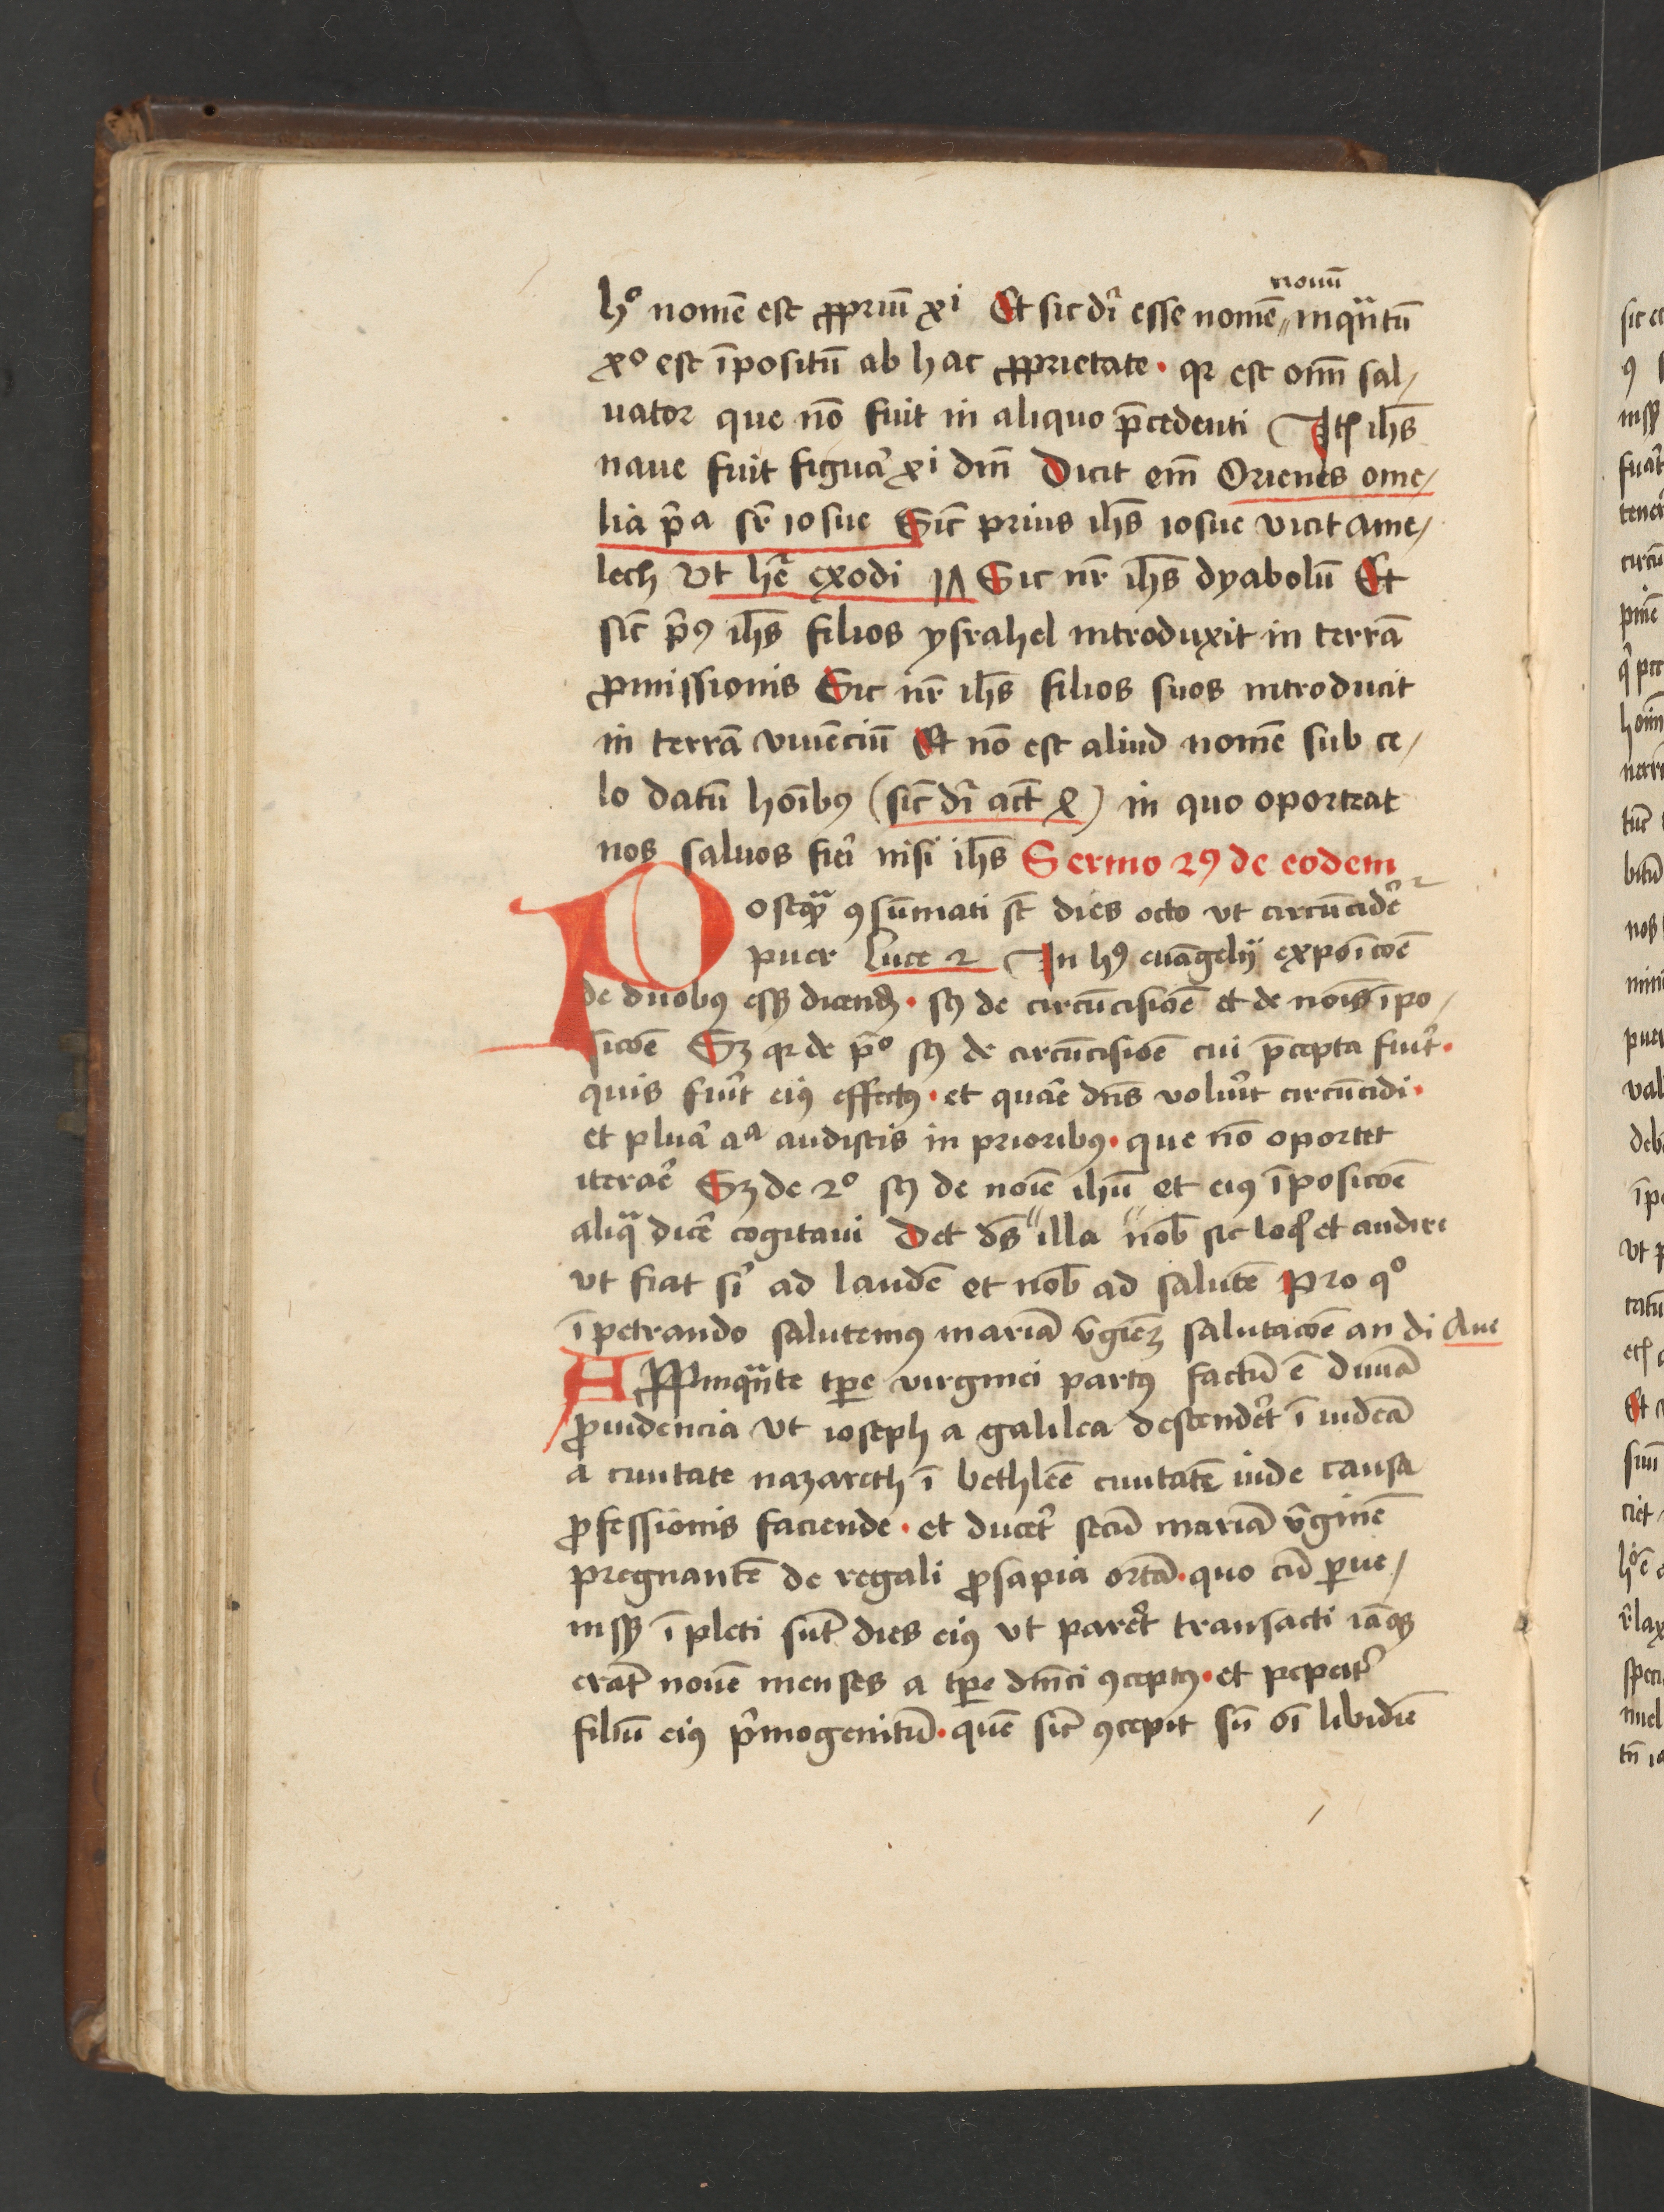 hº nomē est ꝓpriū xi Et sic dr̄ esse nomē nouū inqͣntū
xº est īpositū ab hac ꝓprietate · qꝛ est om̄ sal/
uator que nō fuit in aliquo p̄cedenti Itē ih̄s
naue fuit figura xi dn̄i Dicit em̄ Orienes ome/
lia p̄a sr̄ iosue Sic̄ prius ih̄s iosue vicit ame/
lech vt hr̄ exodi 17 Sic nr̄ ih̄s dyabolū Et
sic̄ p̄ꝰ ih̄s filios ysrahel introduxit in terrā
ꝓmissionis Sic nr̄ ih̄s filios suos introducit
in terrā viuēciū Et nō est aliud nomē sub ce/
lo datū hoībꝰ (sic̄ dr̄ act̄ 4) in quo oporteat
nos saluos fieri nisi ih̄s Sermo 2ꝰ de eodem
Postqͣ ꝯsūmati st̄ dies octo vt circūcider̄
puer Luce 2 In hꝰ euāgelij expoīcōe
de duobꝰ eſſꝫ dicendū · sꝫ de circūcisiōe et de noīs īpo/
sicōe Sꝫ qꝛ de p̄º sꝫ de circūcisiōe cui p̄cepta fuit ·
quis fuit eiꝰ effectꝰ · et quar̄ dn̄s voluit circūcidi ·
et plura aͣ audistis in prioribꝰ · que nō oportet
iterar̄ Sꝫ de 2º sꝫ de noīe ih̄u et eiꝰ īposicōe
aliqͣ dicer̄ cogitaui Det ds̄ illa nob̄ sic loqͥ et audire
vt fiat sͥ ad laudē et nob̄ ad salutē Pro qº
īpetrando salutemꝰ mariā v̄gīeꝫ salutacōe an di Aue
Aꝓpinqͣnte tꝑe virginei partꝰ factū ē diuīa
ꝓuidencia vt ioseph a galilea descender̄t ī iudeā
a ciuitate nazareth ī bethleē ciuitatē iude causa
ꝓfessionis faciende · et ducer̄t secū mariā v̄ginē
pregnantē de regali ꝓsapia ortā · quo cū ꝑue/
nissꝫ īpleti sūt dies eiꝰ vt parer̄t transacti iāqꝫ
erāt nouē menses a tꝑe dn̄ici ꝯceptꝰ · et peperit
filiū eiꝰ p̄mogenitū · quē sic̄ ꝯcepit sn̄ oī libidīe